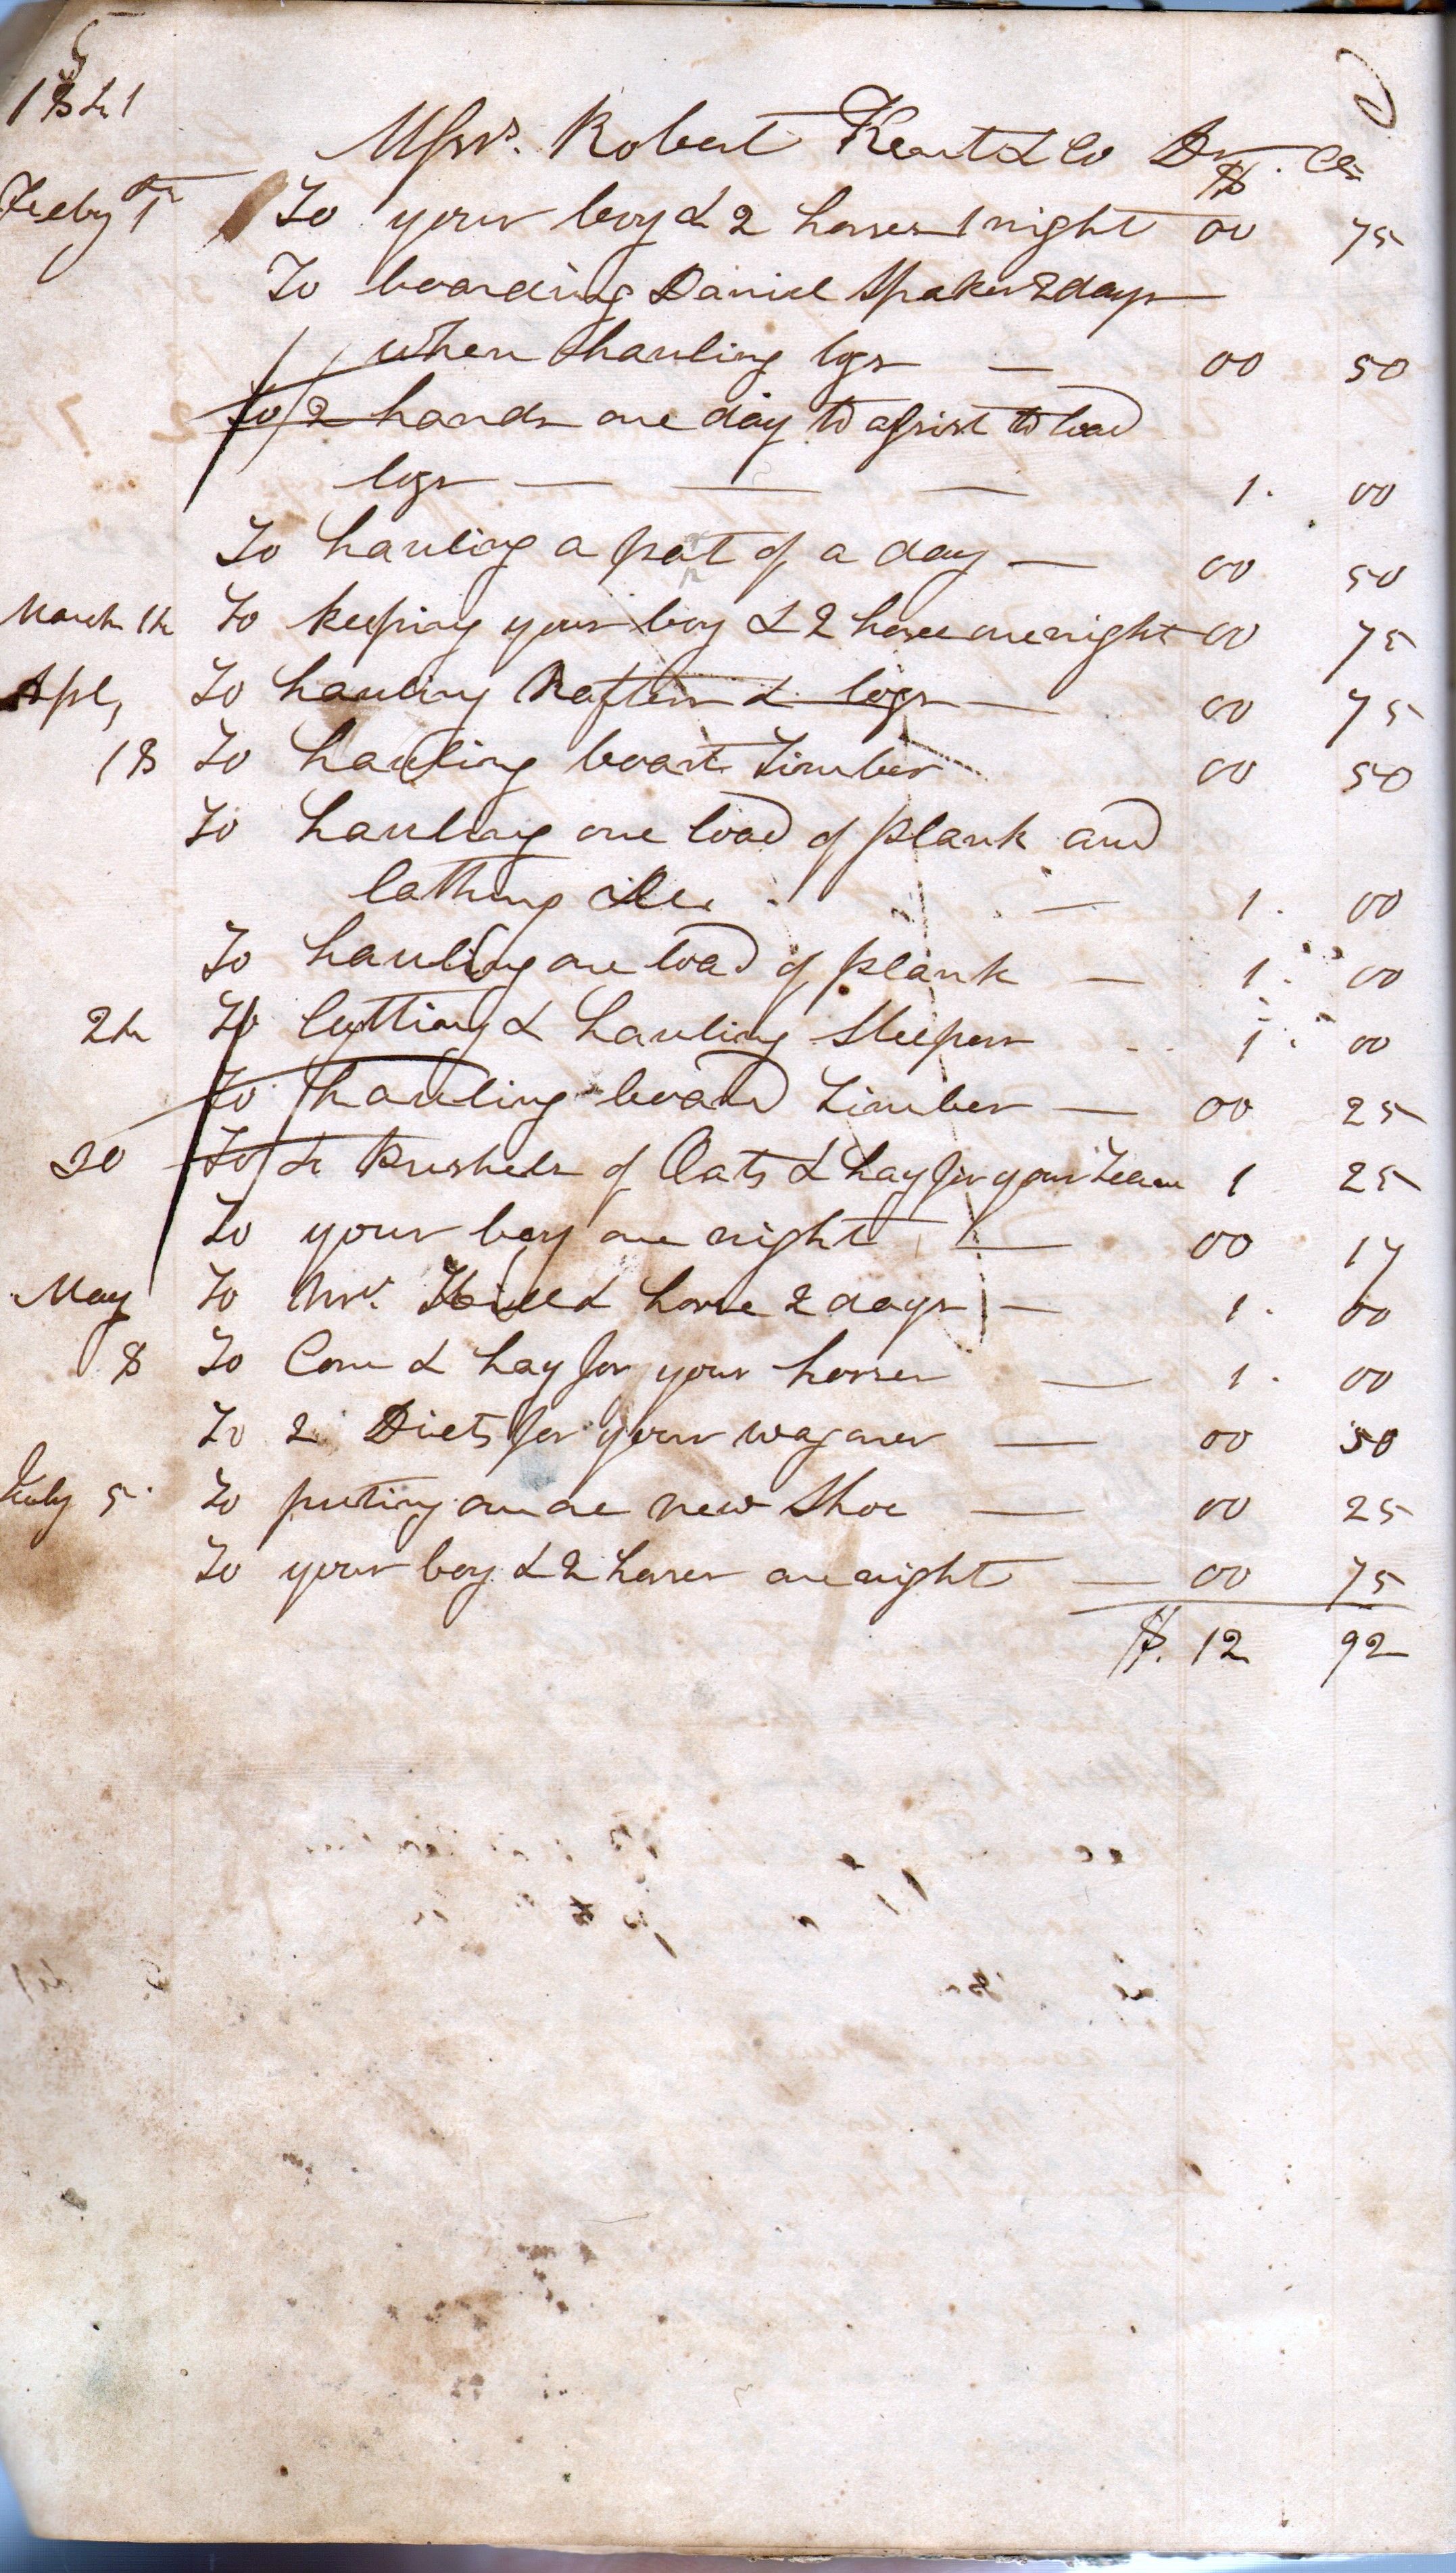 1841
Messrs. Robert & Co Dr $ Cts
Feby 1 To your boy & 2 horses 1 night 00 75
To boarding Daniel Spaker 2 days
when hauling logs — 00 50
To 2 hands one day to assist to load
logs — — — 1. 00
To hauling a part of a day — 00 50
March 14 To keeping your boy & 2 horses one night 00 75
Apl, To hauling Rafters & logs — 00 75
18 To hauling board Timber 00 50
To hauling one load of plank and
lathing &c. — 1. 00
To hauling one load of plank — 1. 00
24 To Cutting & hauling Sleepers 1. 00
To hauling board Timber — 00 25
30 To 4 Bushels of Oats & hay for your Team 1 25
To your boy one night — 00 17
May To Mr. Hill & horse 2 days — 1. 00
8 To Corn & hay for your horses — 1. 00
To 2 Diets for your wagoner — 00 50
July 5. To puting on one new Shoe — 00 25
To your boy & 2 horses one night — 00 75
$. 12 92